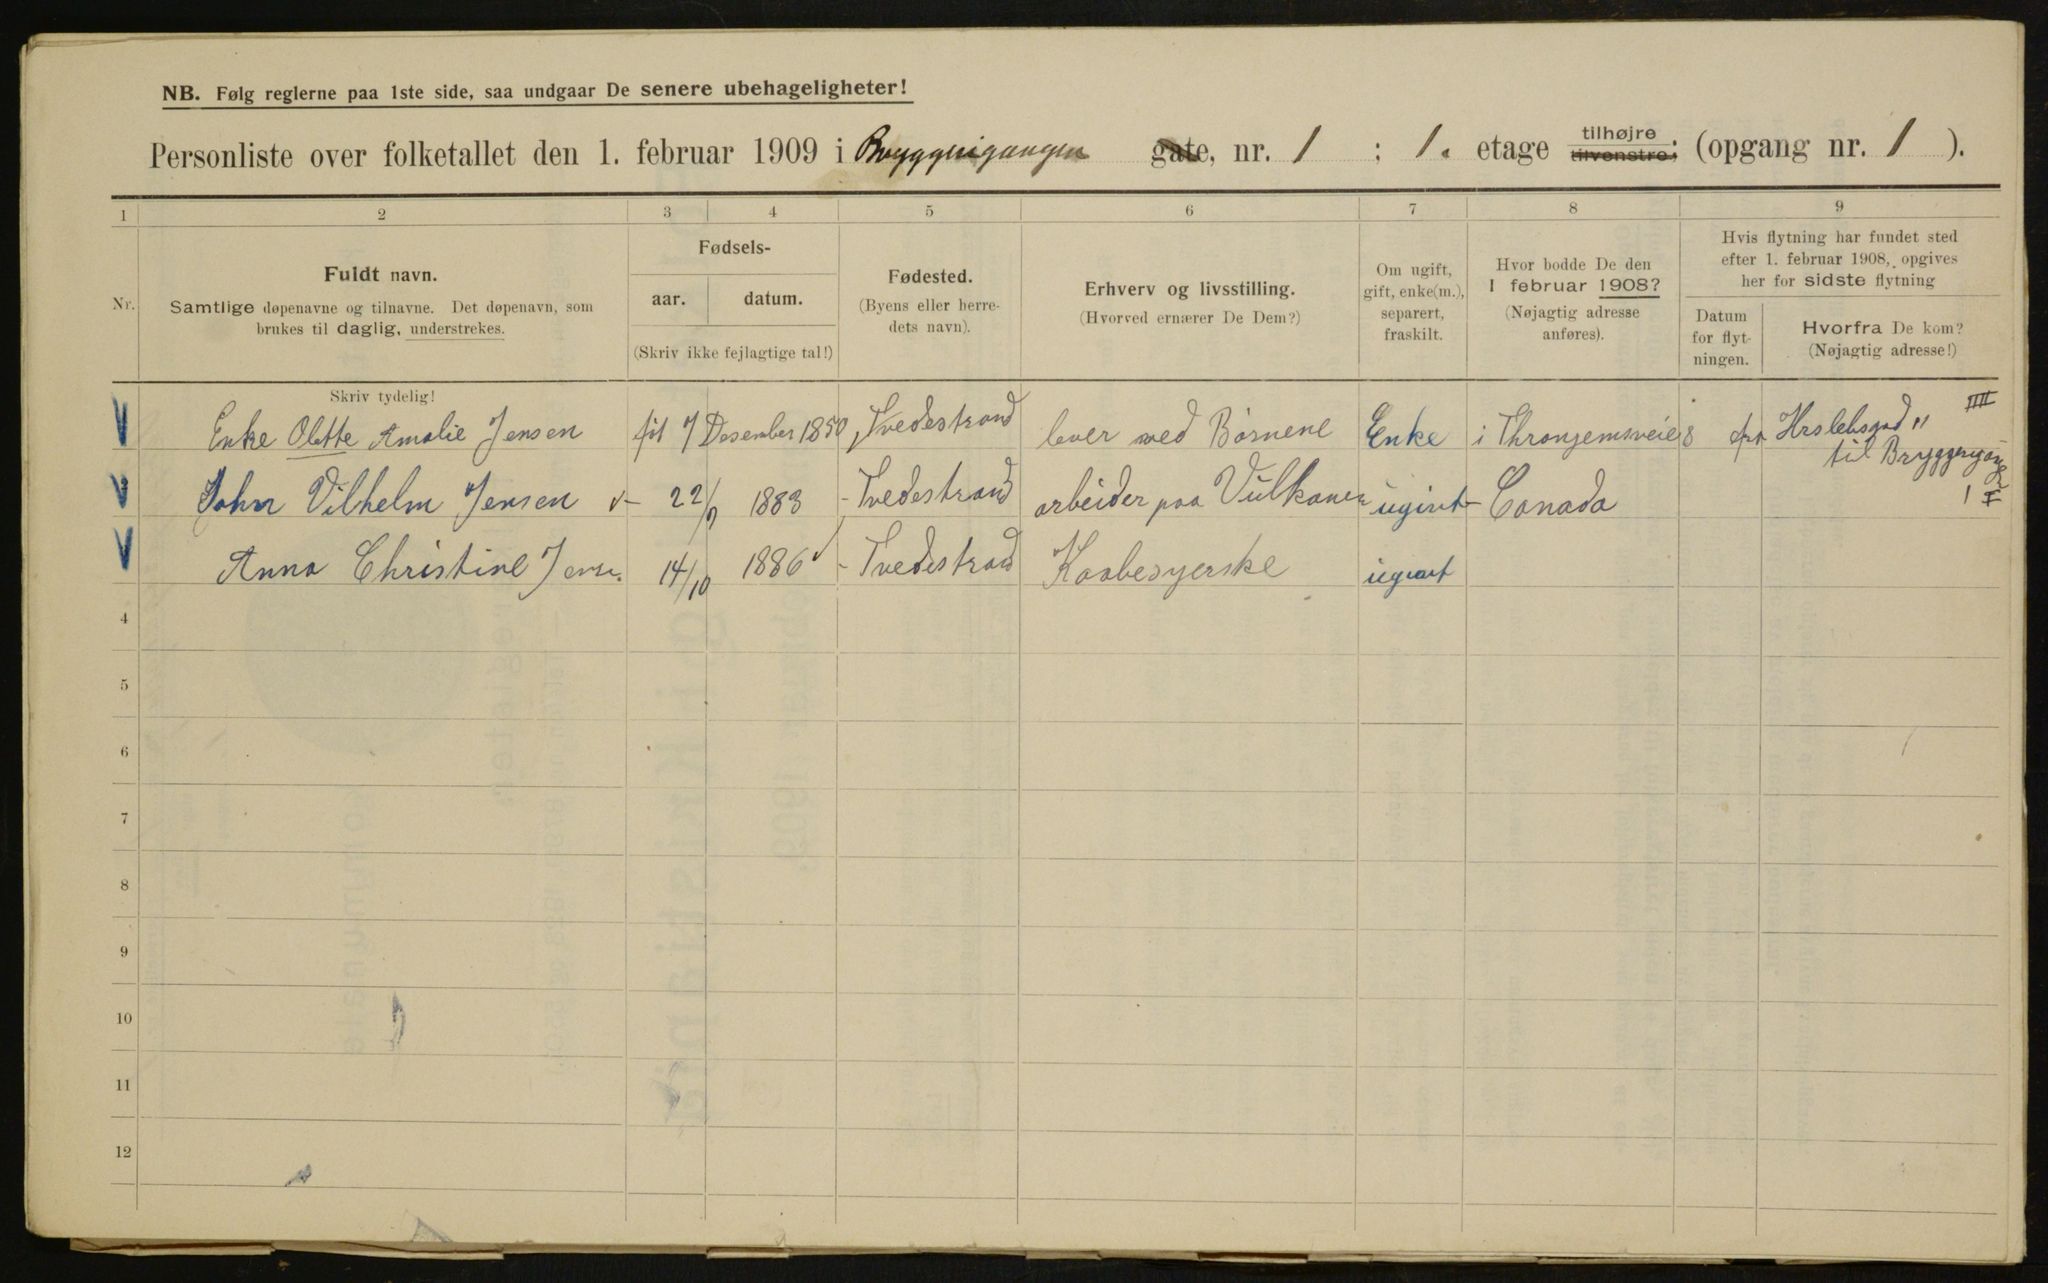 NB. Følg reglerne paa 1ste side, saa undgaar De senere ubehageligheter!
Personliste over folketallet den 1. februar 1909 i Bryggerigangen gate, nr. 1 : 1. etage tilhøjre tilvenstre: (opgang nr. 1 ).
1 2 3 4 5 6 7 8 9
Nr.
Fuldt navn.
Samtlige døpenavne og tilnavne. Det døpenavn, som
brukes til daglig, understrekes.
Skriv tydelig!
Fødsels-
aar. datum.
(Skriv ikke fejlagtige tal!)
Fødested.
(Byens eller herre-
dets navn).
Erhverv og livsstilling.
(Hvorved ernærer De Dem?)
Om ugift,
gift, enke(m.),
separert,
fraskilt.
Hvor bodde De den
1 februar 1908?
(Nøjagtig adresse
anføres).
Hvis flytning har fundet sted
efter 1. februar 1908, opgives
her for sidste flytning
Datum
for flyt-
ningen.
Hvorfra De kom?
(Nøjagtig adresse!)
Enke Olette Amalie Jensen föt 7 Desember 1850 Tvedestrand lever ved Börnene Enke i Thronjemsveien 8 fra Hrslebsgad 11 IIII
til Bryggerigange
1 I
John Vilhelm Jensen 22/9 1883 - Tvedestrand arbeider paa Vulkanen ugivt - Canada
Anna Christine Jense. 14/10 1886 - Tvedestrand Kaabesyerske ugivt
4
5
6
7
8
9
10
11
12